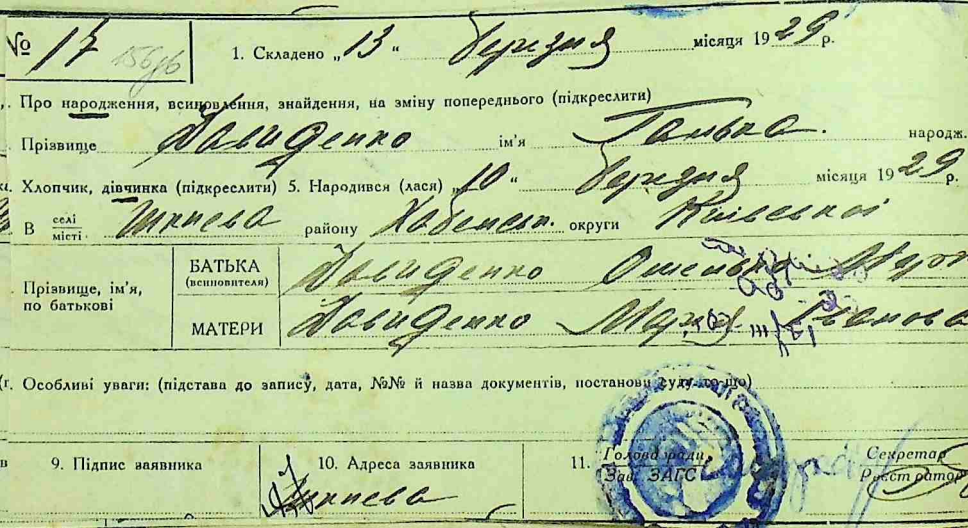 № 17 1. Складено „13“ березня місяця 1929 р.
Про народження, всиновлення, знайдення, на зміну попереднього (підкреслити)
Прізвище Давиденко ім'я Ганька народж.
Хлопчик, дівчинка (підкреслити) 5. Народився (лася) „10“ березня місяця 1929 р.
В селі місті Шкнева району Хабенськ. округи Київської
Прізвище, ім'я, по батькові
БАТЬКА (всиновителя) Давиденко
МАТЕРИ Давиденко Іванова
Особливі уваги: (підстава до запису, дата, №№ й назва документів, постанови суду то-що)
9. Підпис заявника 10. Адреса заявника 11. Голова ради, Секретар
Зав. ЗАГС Реєстратор
Шкнева